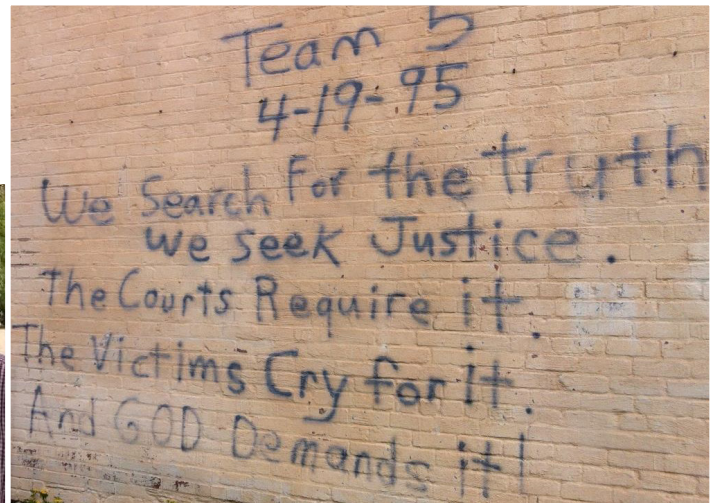 Team 5
4-19-95
We Search For the truth
We seek Justice.
The Courts Require it.
The Victims Cry for it.
And GOD Demands it!